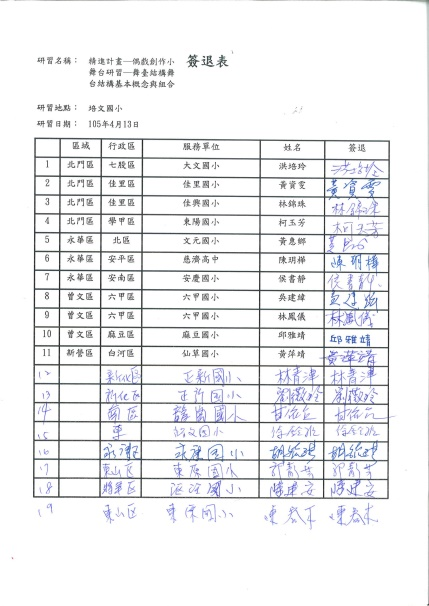 簽退表
研習名稱： 精進計畫—偶戲創作小
舞台研習—舞臺結構舞
台結構基本概念與組合
研習地點： 培文國小
研習日期： 105年4月13日
區域 行政區 服務單位 姓名 簽退
1 北門區 七股區 大文國小 洪培玲
2 北門區 佳里區 佳里國小 黃資雯 黃資雯
3 北門區 佳里區 佳興國小 林錦珠 林錦珠
4 北門區 學甲區 東陽國小 柯玉芳 柯玉芳
5 永華區 北區 文元國小 黃惠卿
6 永華區 安平區 慈濟高中 陳玥樺 陳玥樺
7 永華區 安南區 安慶國小 侯書靜 侯書靜
8 曾文區 六甲區 六甲國小 吳建緯 吳建緯
9 曾文區 六甲區 六甲國小 林鳳儀 林鳳儀
10 曾文區 麻豆區 麻豆國小 邱雅靖 邱雅靖
11 新營區 白河區 仙草國小 黃萍靖
12 新化區 正新國小 林青津 林青津
13 新化区 正新国小
14 南區 國小
15 東 国小
16 永康区 国小
17 東山区 国小
18 將軍区 國小 陳建安 陳建安
19 東山区 東原国小 陳春木 陳春木